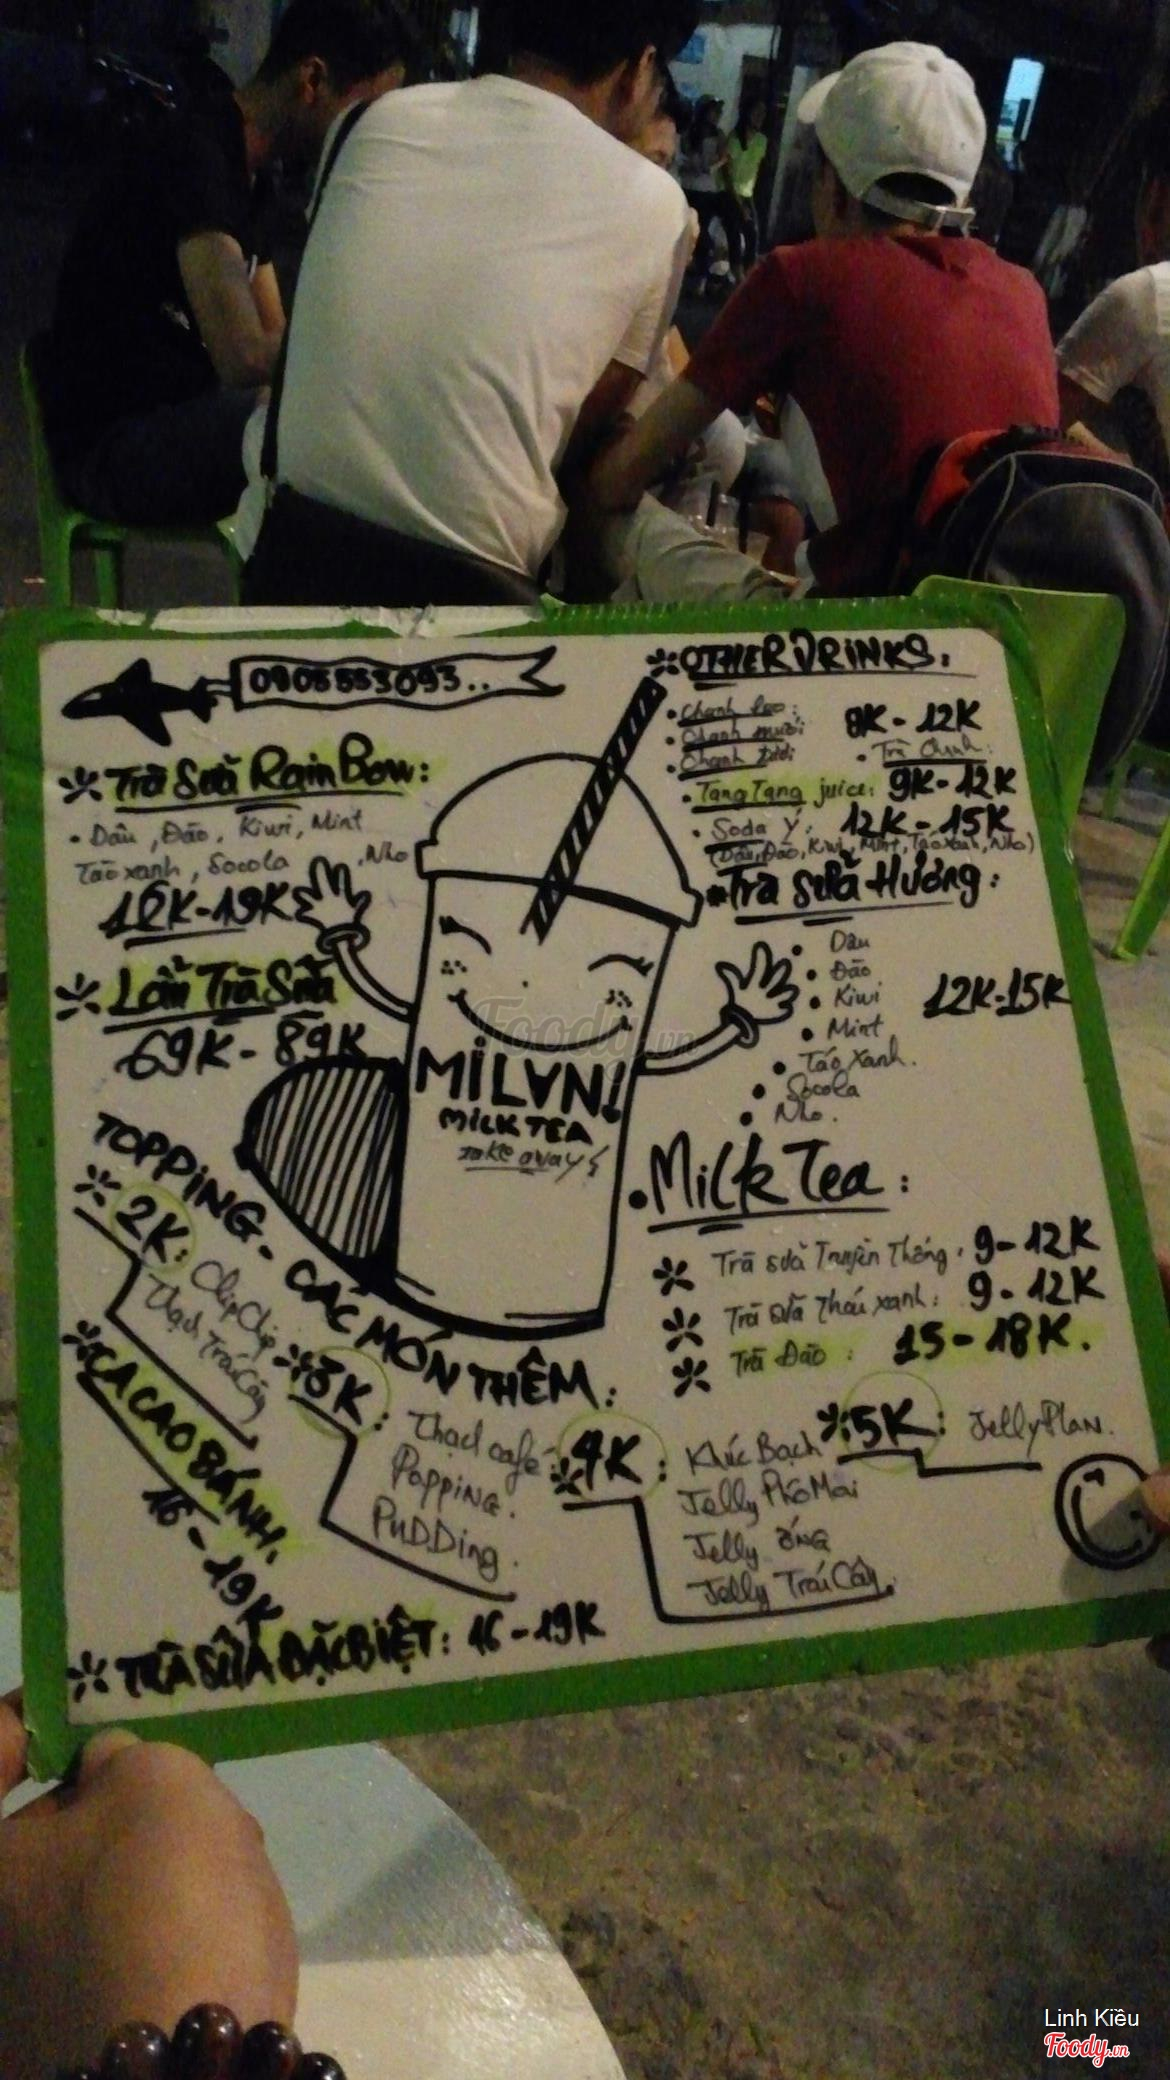 0905553093..
Trà Sữa RainBow:
• Dâu, Đào, Kiwi, Mint
Táo xanh, Socola, Nho
16K-19K
Lẩu Trà Sữa
69K - 89K
MiLANi
MiLK TEA
take away
OTHER DRINKS:
• Chanh
• Chanh muối
8K - 12K
• Chanh tươi
• Trà Chanh:
• TangTang juice: 9K - 12K
• Soda Ý: 12K - 15K
(Dâu, Đào, Kiwi, Mint, Táo xanh, Nho)
Trà Sữa Hương:
• Dâu
• Đào
• Kiwi
12K-15K
• Mint
• Táo Xanh.
• Socola
• Nho.
• Milk Tea:
Trà sữa Truyền Thống: 9 - 12K
Trà sữa Thái xanh: 9 - 12K
Trà Đào: 15 - 18K.
TOPPiNG - CÁC MÓN THÊM:
2K: ClipChip
Thạch Trái Cây
3K: Thạch café
Popping.
PuDDing.
4K: Khúc Bạch
Jelly Phô Mai
Jelly ỐNG
Jelly Trái Cây.
5K: Jelly Plan.
CACAO BÁNH.
16 - 19K
TRÀ SỮA ĐẶC BIỆT: 16 - 19K
Foody.vn
Linh Kiều
Foody.vn